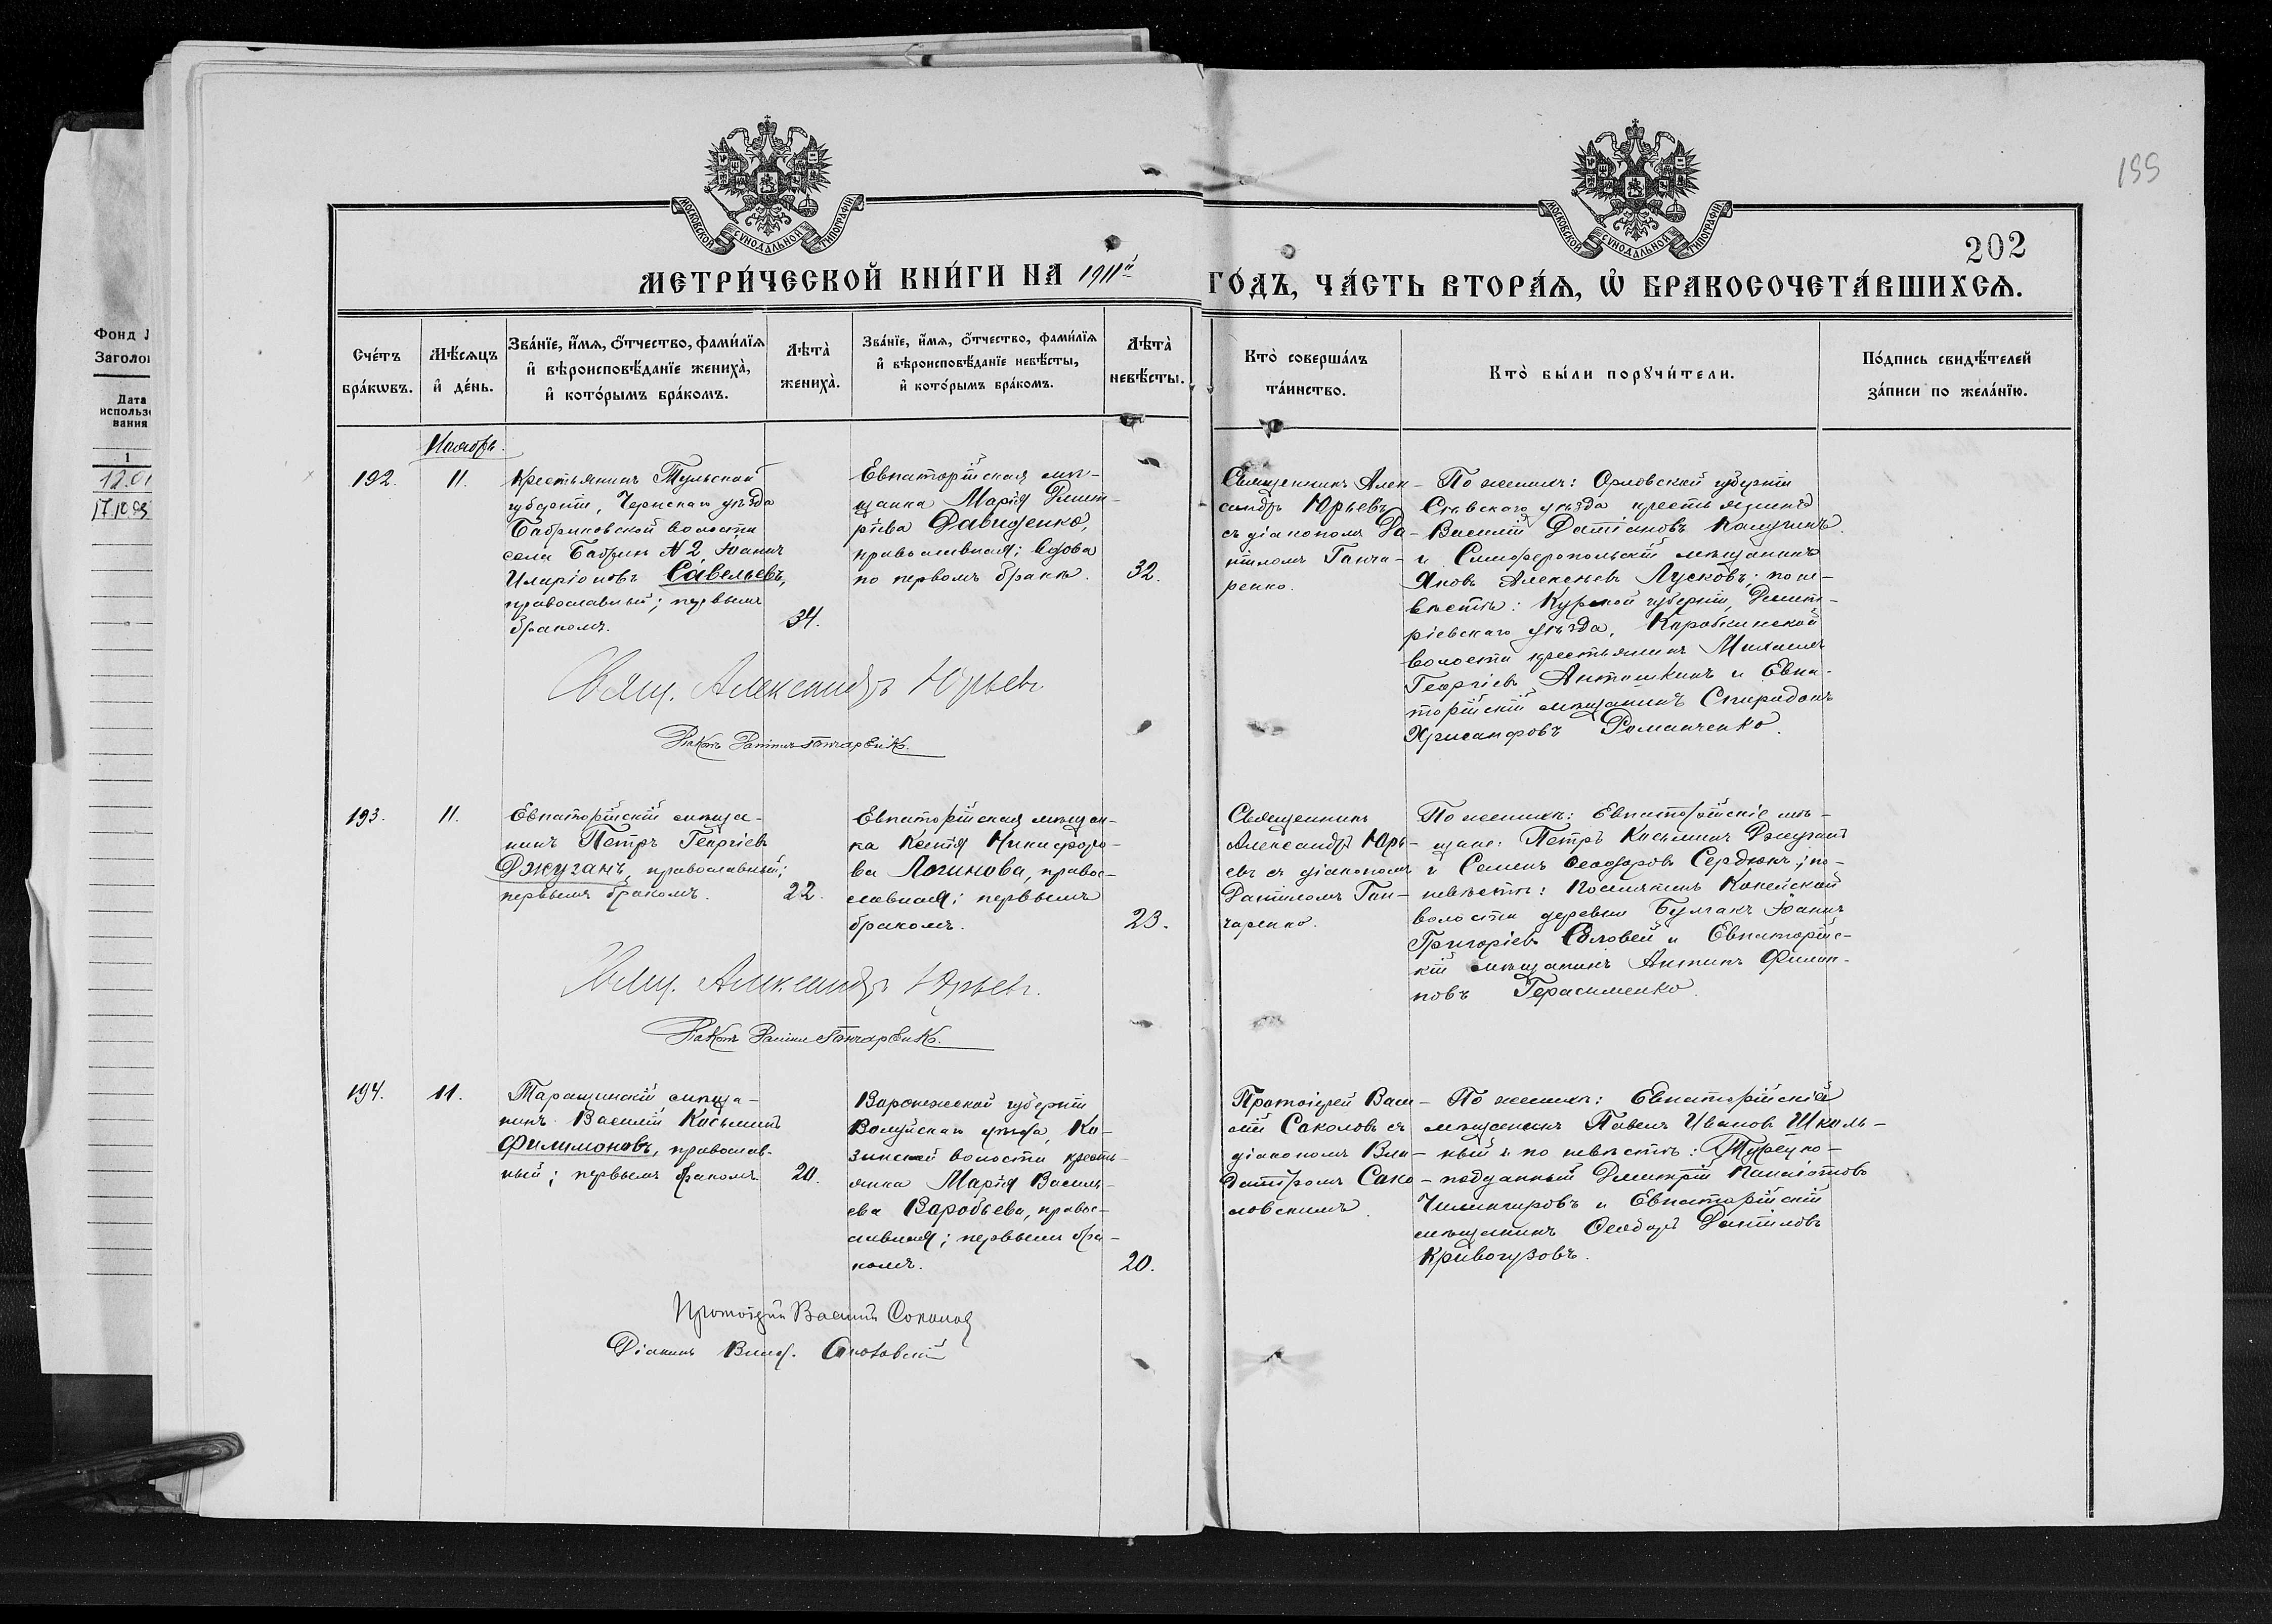 199
МОСКОВСКОЙ СУНОДАЛЬНОЙ ТИПОГРАФІИ
МОСКОВСКОЙ СУНОДАЛЬНОЙ ТИПОГРАФІИ
202
МЕТРИ́ЧЕСКОЙ КНИ́ГИ НА 1911й ГО́ДЪ, ЧА́СТЬ ВТОРА́Ѧ, Ѡ҆ БРАКОСОЧЕТА́ВШИХСѦ.
Фонд
Заголо
Дата
использо
вания
1
12.01
17.10.
Сче́тъ
бра́кωвъ.
Мѣ́сѧцъ
и҆ де́нь.
Зва́нїе, и҆́мѧ, ѻ҆́тчество, фами́лїѧ
и҆ вѣроисповѣ́данїе жениха̀,
и҆ кото́рымъ бра́комъ.
Лѣта̀
жениха̀.
Зва́нїе, и҆́мѧ, ѻ҆́тчество, фами́лїѧ
и҆ вѣроисповѣ́данїе невѣ́сты,
и҆ кото́рымъ бра́комъ.
Лѣта̀
невѣ́сты.
Кто̀ соверша́лъ
та́инство.
Кто̀ бы́ли порꙋчи́тели.
По́дпись свидѣ́телей
за́писи по жела́нїю.
Ноябрь.
192.
11.
Крестьянинъ Тульской
губерніи, Чернскаго уѣзда
Бабриковской волости
села Бабрик № 2 Іоаннъ
Иларіоновъ Савельевъ,
православный; первымъ
бракомъ.
34.
Евпаторійская мѣ-
щанка Марія Дмит-
ріева Давиденко,
православная; вдова
по первомъ бракѣ.
32.
Священникъ Алек-
сандръ Юрьевъ
съ діакономъ Да-
ніиломъ Ганча-
ренко.
По женихѣ: Орловской губерніи
Сѣвскаго уѣзда крестьянинъ
Василій Даміановъ Калугинъ
и Симферопольскій мѣщанинъ
Яковъ Алексѣевъ Лусковъ; по не-
вѣстѣ: Курской губерніи, Дмит-
ріевскаго уѣзда, Коробкинской
волости крестьянинъ Михаилъ
Георгіевъ Антошкинъ и Евпа-
торійскій мѣщанинъ Спиридонъ
Хрисанфовъ Романченко.
Свящ. Александръ Юрьевъ
Діаконъ Даніилъ Ганчаренко.
193.
11.
Евпаторійскій мѣща-
нинъ Петръ Георгіевъ
Джуганъ, православный;
первымъ бракомъ.
22.
Евпаторійская мѣщан-
ка Ксенія Никифоро-
ва Логинова, право-
славная; первымъ
бракомъ.
23.
Священникъ
Александръ Юрь-
евъ съ діакономъ
Даніиломъ Ган-
чаренко.
По женихѣ: Евпаторійскіе мѣ-
щане: Петръ Косьминъ Джуганъ
и Семенъ Ѳеодоровъ Сердюкъ; по-
невѣстѣ: поселянинъ Конейской
волости деревни Булгакъ Іоаннъ
Григорьевъ Соловей и Евпаторійс-
кій мѣщанинъ Антонъ Филип-
повъ Герасименко.
Свящ. Александръ Юрьевъ.
Діаконъ Даніилъ Ганчаренко.
194.
11.
Таращинскій мѣща-
нинъ Василій Косьминъ
Филимоновъ, православ-
ный; первымъ бракомъ.
20.
Воронежской губерніи
Валуйскаго уѣзда, Ко-
зинской волости кресть-
янка Марія Василь-
ева Воробьева, право-
славная; первымъ бра-
комъ.
20.
Протоіерей Васи-
лій Соколовъ съ
діакономъ Вла-
диміромъ Соко-
ловскимъ.
По женихѣ: Евпаторійскій
мѣщанинъ Павелъ Ивановъ Школь-
ный и по невѣстѣ: Турецко-
подданный Димитрій Панаіотовъ
Чилингировъ и Евпаторійскій
мѣщанинъ Ѳеодоръ Даніиловъ
Кривогузовъ.
Протоіерей Василій Соколовъ
Діаконъ Влад. Соколовскій